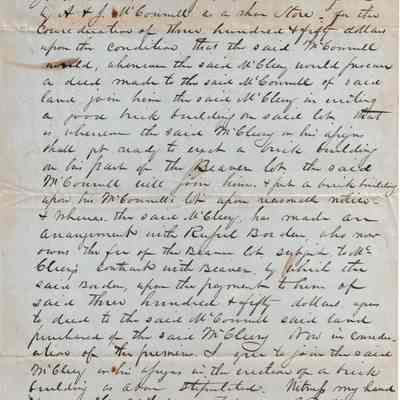 by A & J. McConnell as a shoe Store - for the
Consideration of three hundred & fifty dollars
upon the condition that the said McConnell
would, whenever the said McClery would procure
a deed made to the said McConnell of said
land join him the said McClery in erecting
a good brick building on said lot, that
is whenever the said McClery or his assigns
shall get ready to erect a brick building
on his part of the Beaver lot the said
McConnell will join him, & put a brick building
upon his McConnells lot upon reasonable notice -
& Whereas the said McClery, has made an
arrangement with Rufus Borden who now
owns the fee of the Beaver lot subject to Mc
Clerys contract with Beaver, by which the
said Borden, upon the payment to him of
said three hundred & fifty dollars agrees
to deed to the said McConnell said land
purchased of the said McClery Now in consider-
ation of the premises. I agree to join the said
McClery or his assigns in the erection of a brick
building as above stipulated. Witness my hand